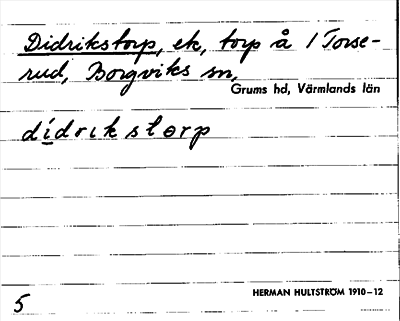 Didrikstorp, ek, torp å 1 Torse-
rud, Borgviks sn,
Grums hd, Värmlands län
dídrikstorp
HERMAN HULTSTRÖM 1910-12
5